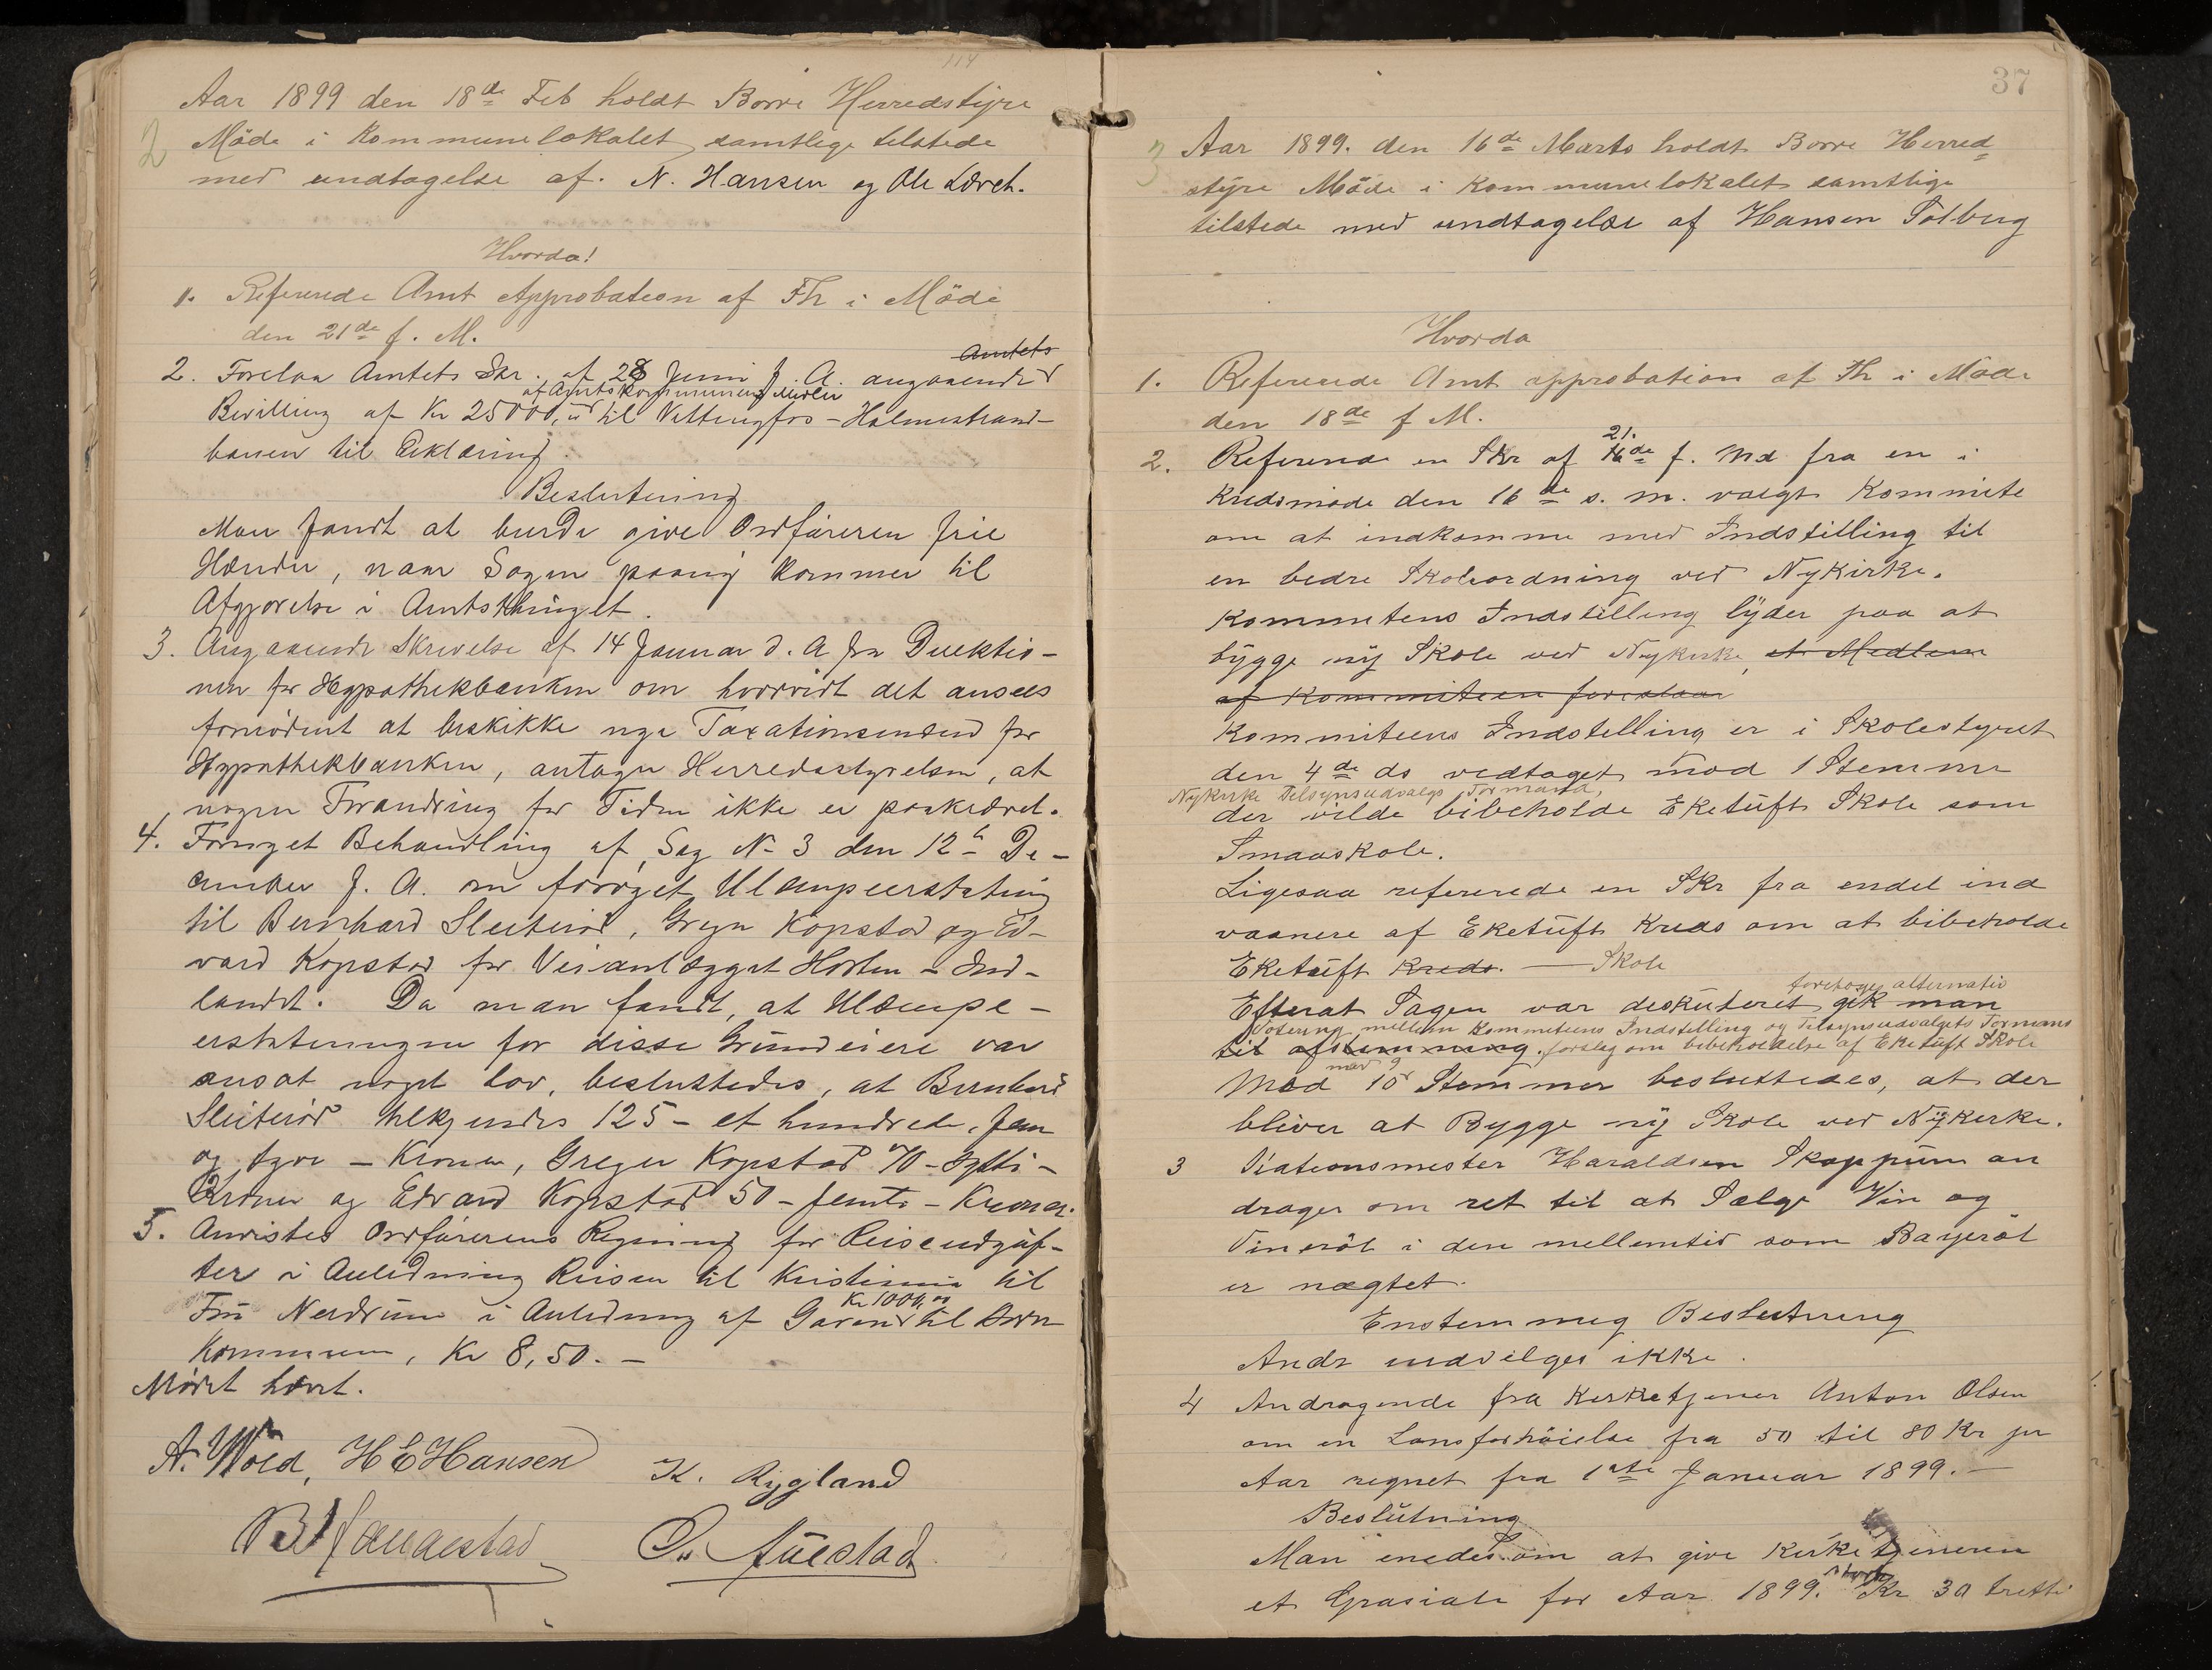 114
Aar 1899 den 18de Feb holdt Borre Herredstyre
2 Möde i Kommunelokalet, samtlige tilstede
med undtagelse af. N. Hansen og Ole Lørch.
Hvorda!
1. Refererede Amt Approbation af Fh i Möde
den 21de f. M.
2. Forelaa Amtets Skr. af 28 Juni f. A. angaaende Amtets
af Amtskommunens Midler
Bevilling af Kr 25000,00 til Vittingfos-Holmestrand-
banen til Erklæring.
Beslutning
Man fandt at burde give Ordføreren frie
Hænder, naar Sagen paany kommer til
Afgjørelse i Amtsthinget.
3. Angaaende Skrivelse af 14 Januar d. A fra Direktio-
nen for Hypothekbanken om hvorvidt det ansees
fornødent at beskikke nye Taxationsmænd for
Hypothekbanken, antager Herredsstyrelsen, at
nogen Forandring for Tiden ikke er paakrævet.
4. Fornyet Behandling af Sag No 3 den 12te De-
cember f. A. om forøget Ulempeerstatning
til Bernhard Sletterød, Gregu Kopstad og Ed-
vard Kopstad for Veianlægget Horten - Ind-
landet. Da man fandt, at Ulempe-
erstatningen for disse Grundeiere var
ansat noget lav, besluttedes, at Bernhard
Sletterød tilkjendes 125 - et hundrede, fem
og tyve - Kroner, Greger Kopstad 70 - Sytti -
Kroner og Edvard Kopstad 50 - femti - Kroner.
5. Anvistes Ordførerens Regning for Reiseudgif-
ter i Anledning Reisen til Kristiania til
Fru Nerdrum i Anledning af Gaven Kr 1000,00 til Borre
Kommune, Kr 8,50. -
Mødet hævet.
A. Wold, H E Hansen K. Rygland
37
3 Aar 1899. den 16de Marts holdt Borre Herred
styre Möde i Kommunelokalet samtlige
tilstede med undtagelse af Hansen Solberg
Hvorda
1. Refererede Amt approbation af Fh i Möde
den 18de f M.
2. Refererede en Skr af 16de 21. f. Md fra en i
Kredsmöde den 16de s. m. valgt Kommite
om at indkomme med Indstilling til
en bedre Skoleordning ved Nykirke.
Kommitens Indstilling lyder paa at
bygge ny Skole ved Nykirke, et Medlem
af Kommiteen foreslaar
Kommiteens Indstilling er i Skolestyret
den 4de ds vedtaget mod 1 Stemme
Nykirke Tilsynsudvalgs Formand,
der vilde bibeholde Eketuft Skole som
Smaaskole.
Ligesaa refererede en Skr fra endel ind
vaanere af Eketuft Kreds om at bibeholde
Eketuft Kreds. — Skole
Efterat Sagen var deskuteret gik man foretoges alternativ
Votering mellem Kommiteens Indstilling og Tilsynsudvalgets Formans
til afstemning. forslag om bibeholdelse af Eketuft Skole
Med 10 Stemmer besluttedes, at der
bliver at Bygge ny Skole ved Nykirke.
3 Stationsmester Haraldsen Skoppum an
drager om ret til at Sælge Vin og
Vinerøl i den mellemtid som Bayerøl
er nægtet.
Enstemmig Beslutning
Andr indvilges ikke.
4 Andragende fra Kirketjener Anton Olsen
om en Lønsforhöielse fra 50 til 80 Kr pr
Aar regnet fra 1ste Januar 1899. -
Beslutning
Man enedes om at give Kirketjeneren
et Grasiale for Aar 1899. Kr 30 tretti